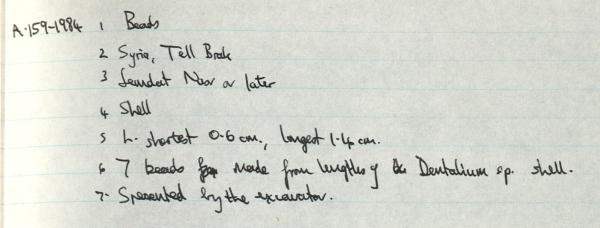 A.159-1984 1 Beads
2 Syria, Tell Brak
3 Jemdat Nasr or later
4 Shell
5 L. shortest 0.6 cm., longest 1.4 cm.
6 7 beads made from lengths of Dentalium sp. shell.
7. Presented by the excavator.